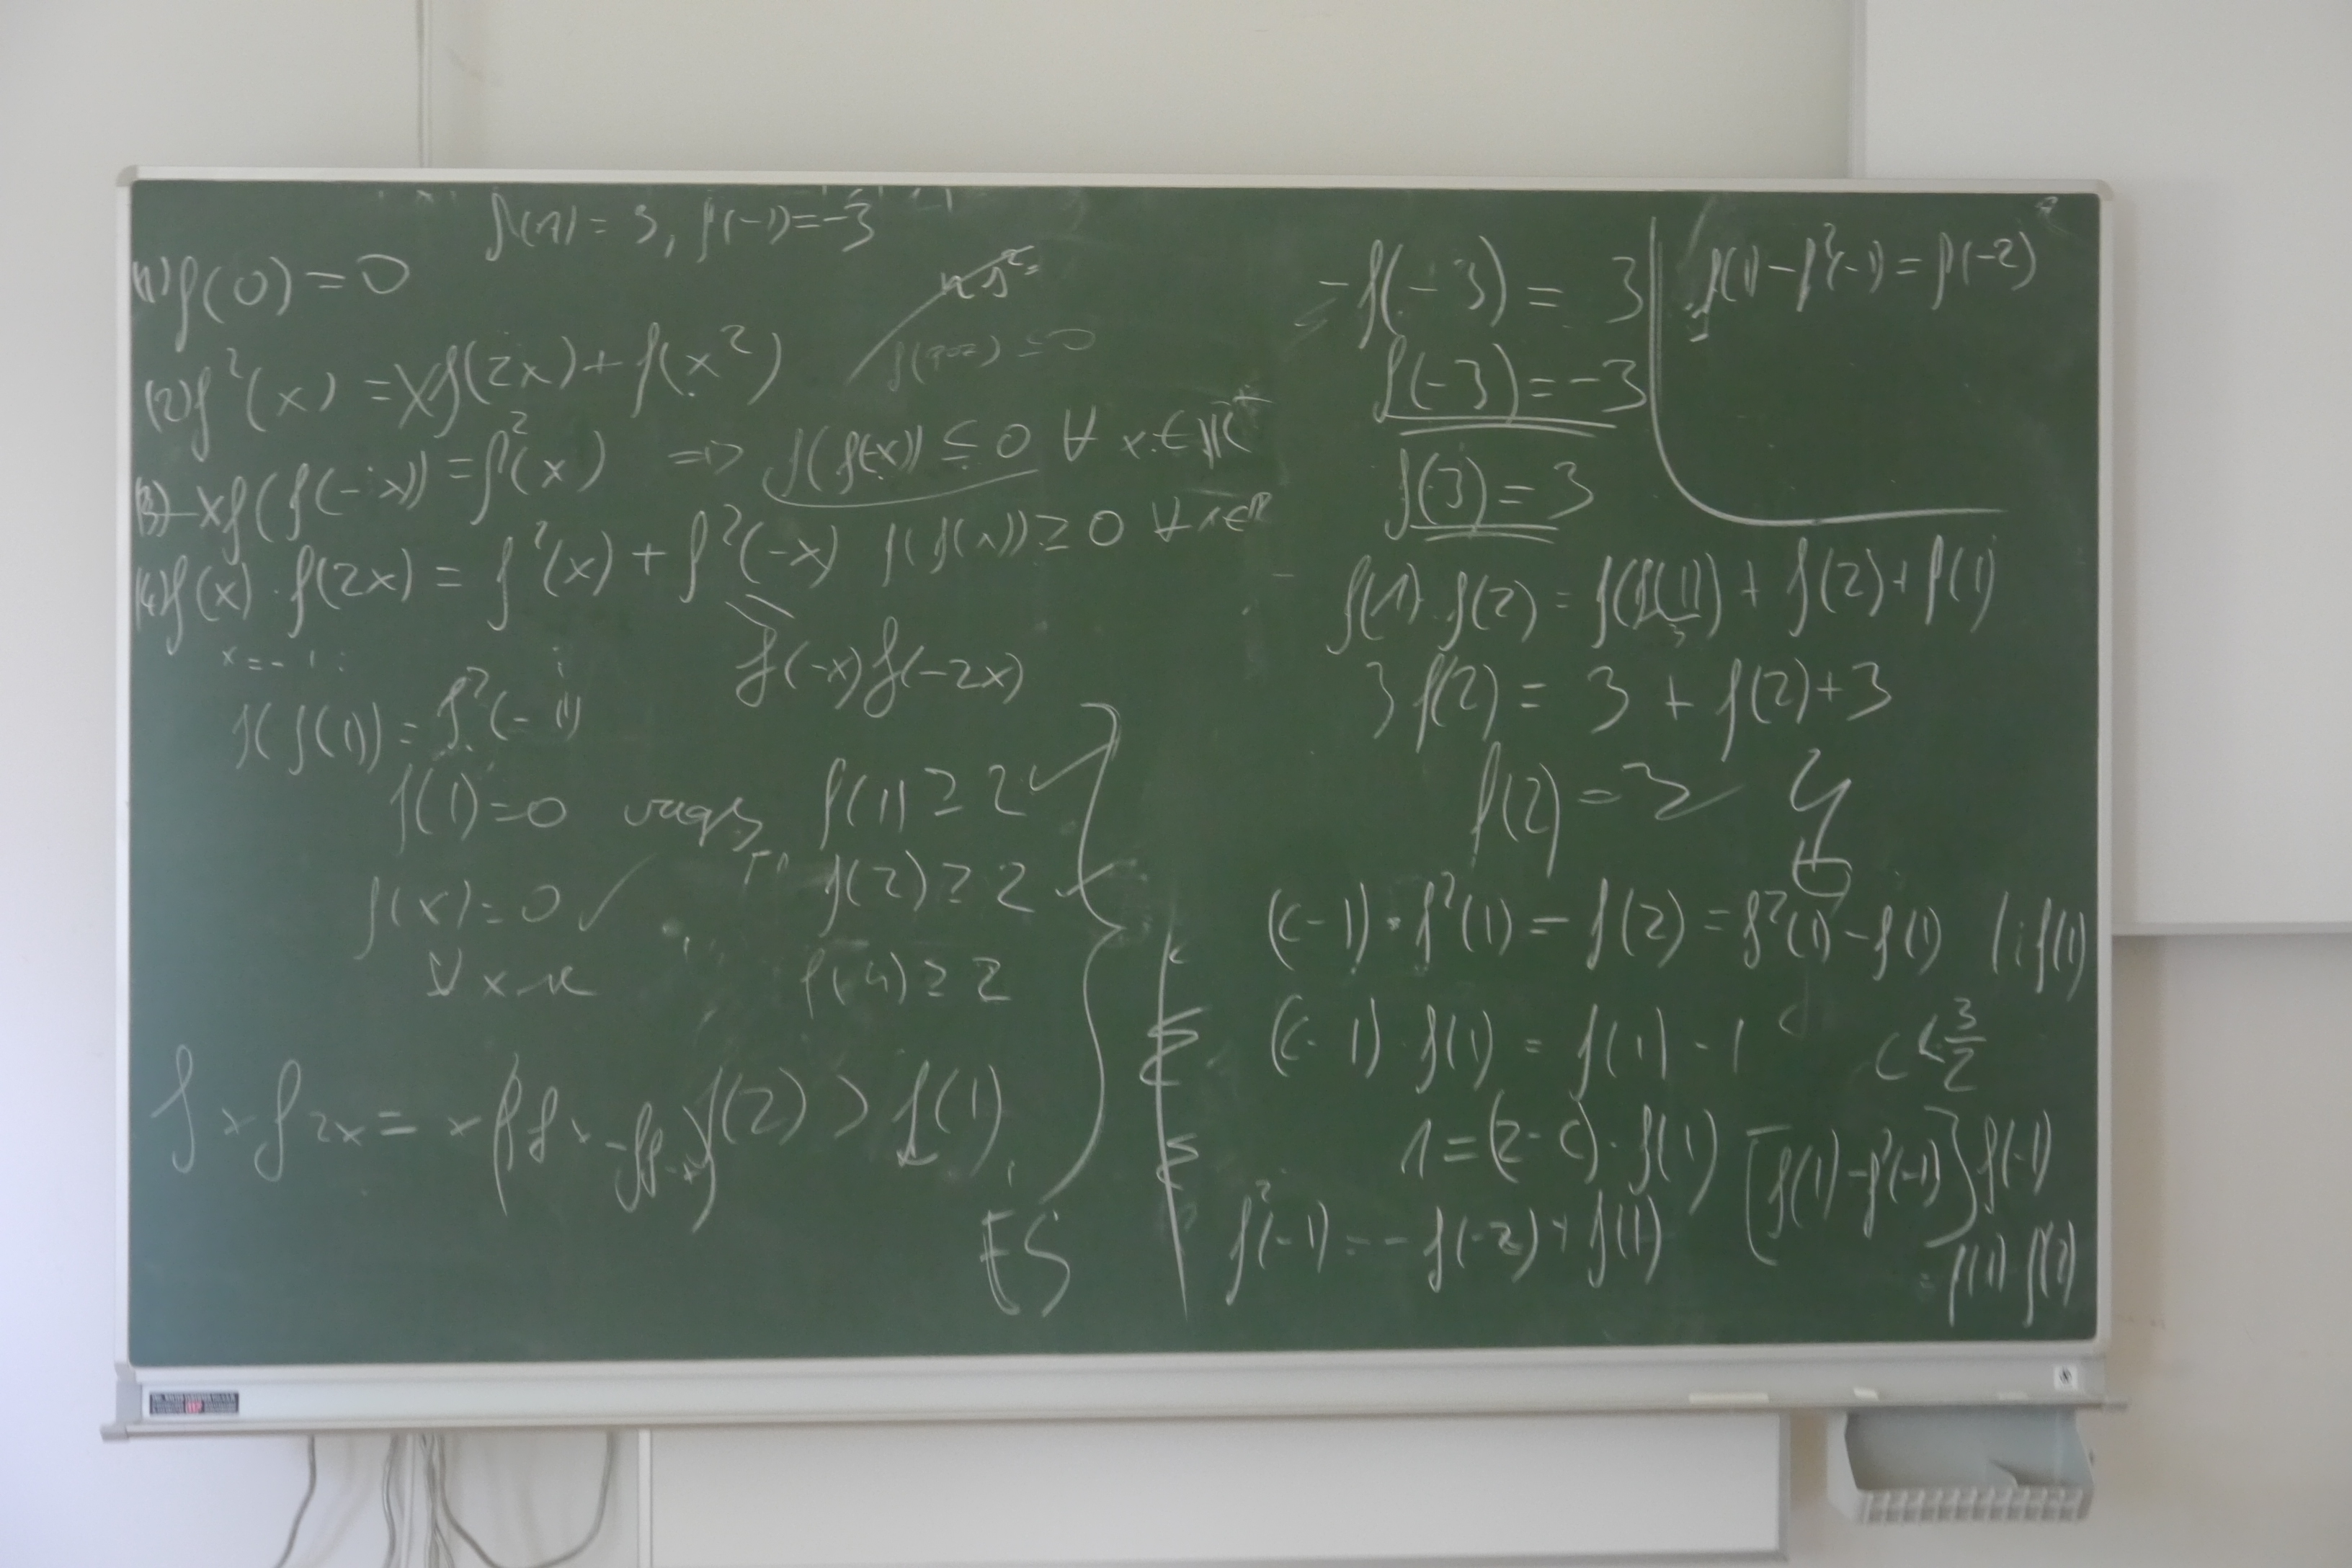 f(1) = 3, f(-1) = -3
(1) f(0) = 0
(2) f²(x) = x f(2x) + f(x²)
(3) -x f(f(-x)) = f²(x) => f(f(x)) ≤ 0 ∀ x ∈ R⁻
(4) f(x) · f(2x) = f²(x) + f²(-x) f(f(x)) ≥ 0 ∀ x ∈ R
f(-x) f(-2x)
x = -1:
f(f(1)) = f²(-1)
f(1) = 0
f(1) ≥ 2 ✓
f(x) = 0 ✓
f(2) ≥ 2 ✓
∀ x
f(4) ≥ 2
f x f 2x = x (f f x - f f -x)
f(2) > f(1)
ES
-f(-3) = 3
f(-3) = -3
f(3) = 3
f(1) - f²(-1) = f(-2)
f(1) · f(2) = f(f(1)) + f(2) + f(1)
3
3 f(2) = 3 + f(2) + 3
f(2) = 3
(c-1) · f²(1) = f(2) = f²(1) - f(1) | : f(1)
(c-1) · f(1) = f(1) - 1
c < 3/2
1 = (2-c) · f(1)
[f(1) - f²(-1)] f(-1)
= f(1) · f(2)
f²(-1) = -f(-2) + f(1)